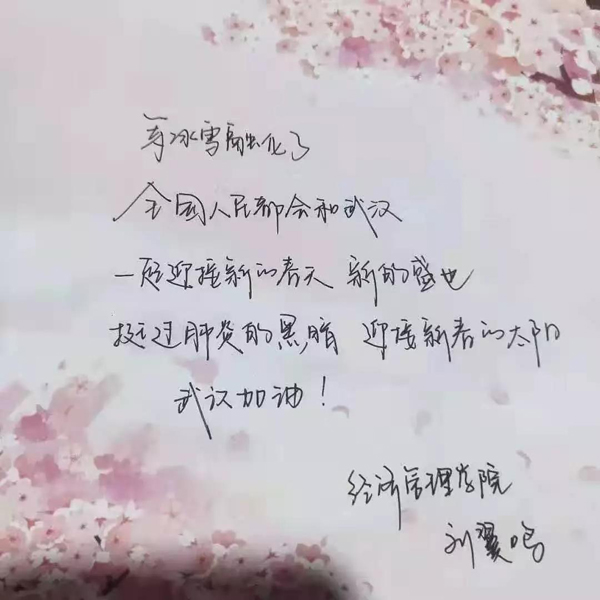 等冰雪融化了
全国人民都会和武汉
一起迎接新的春天 新的盛世
挺过肺炎的黑暗 迎接新春的太阳
武汉加油！
经济管理学院
刘翼鸣